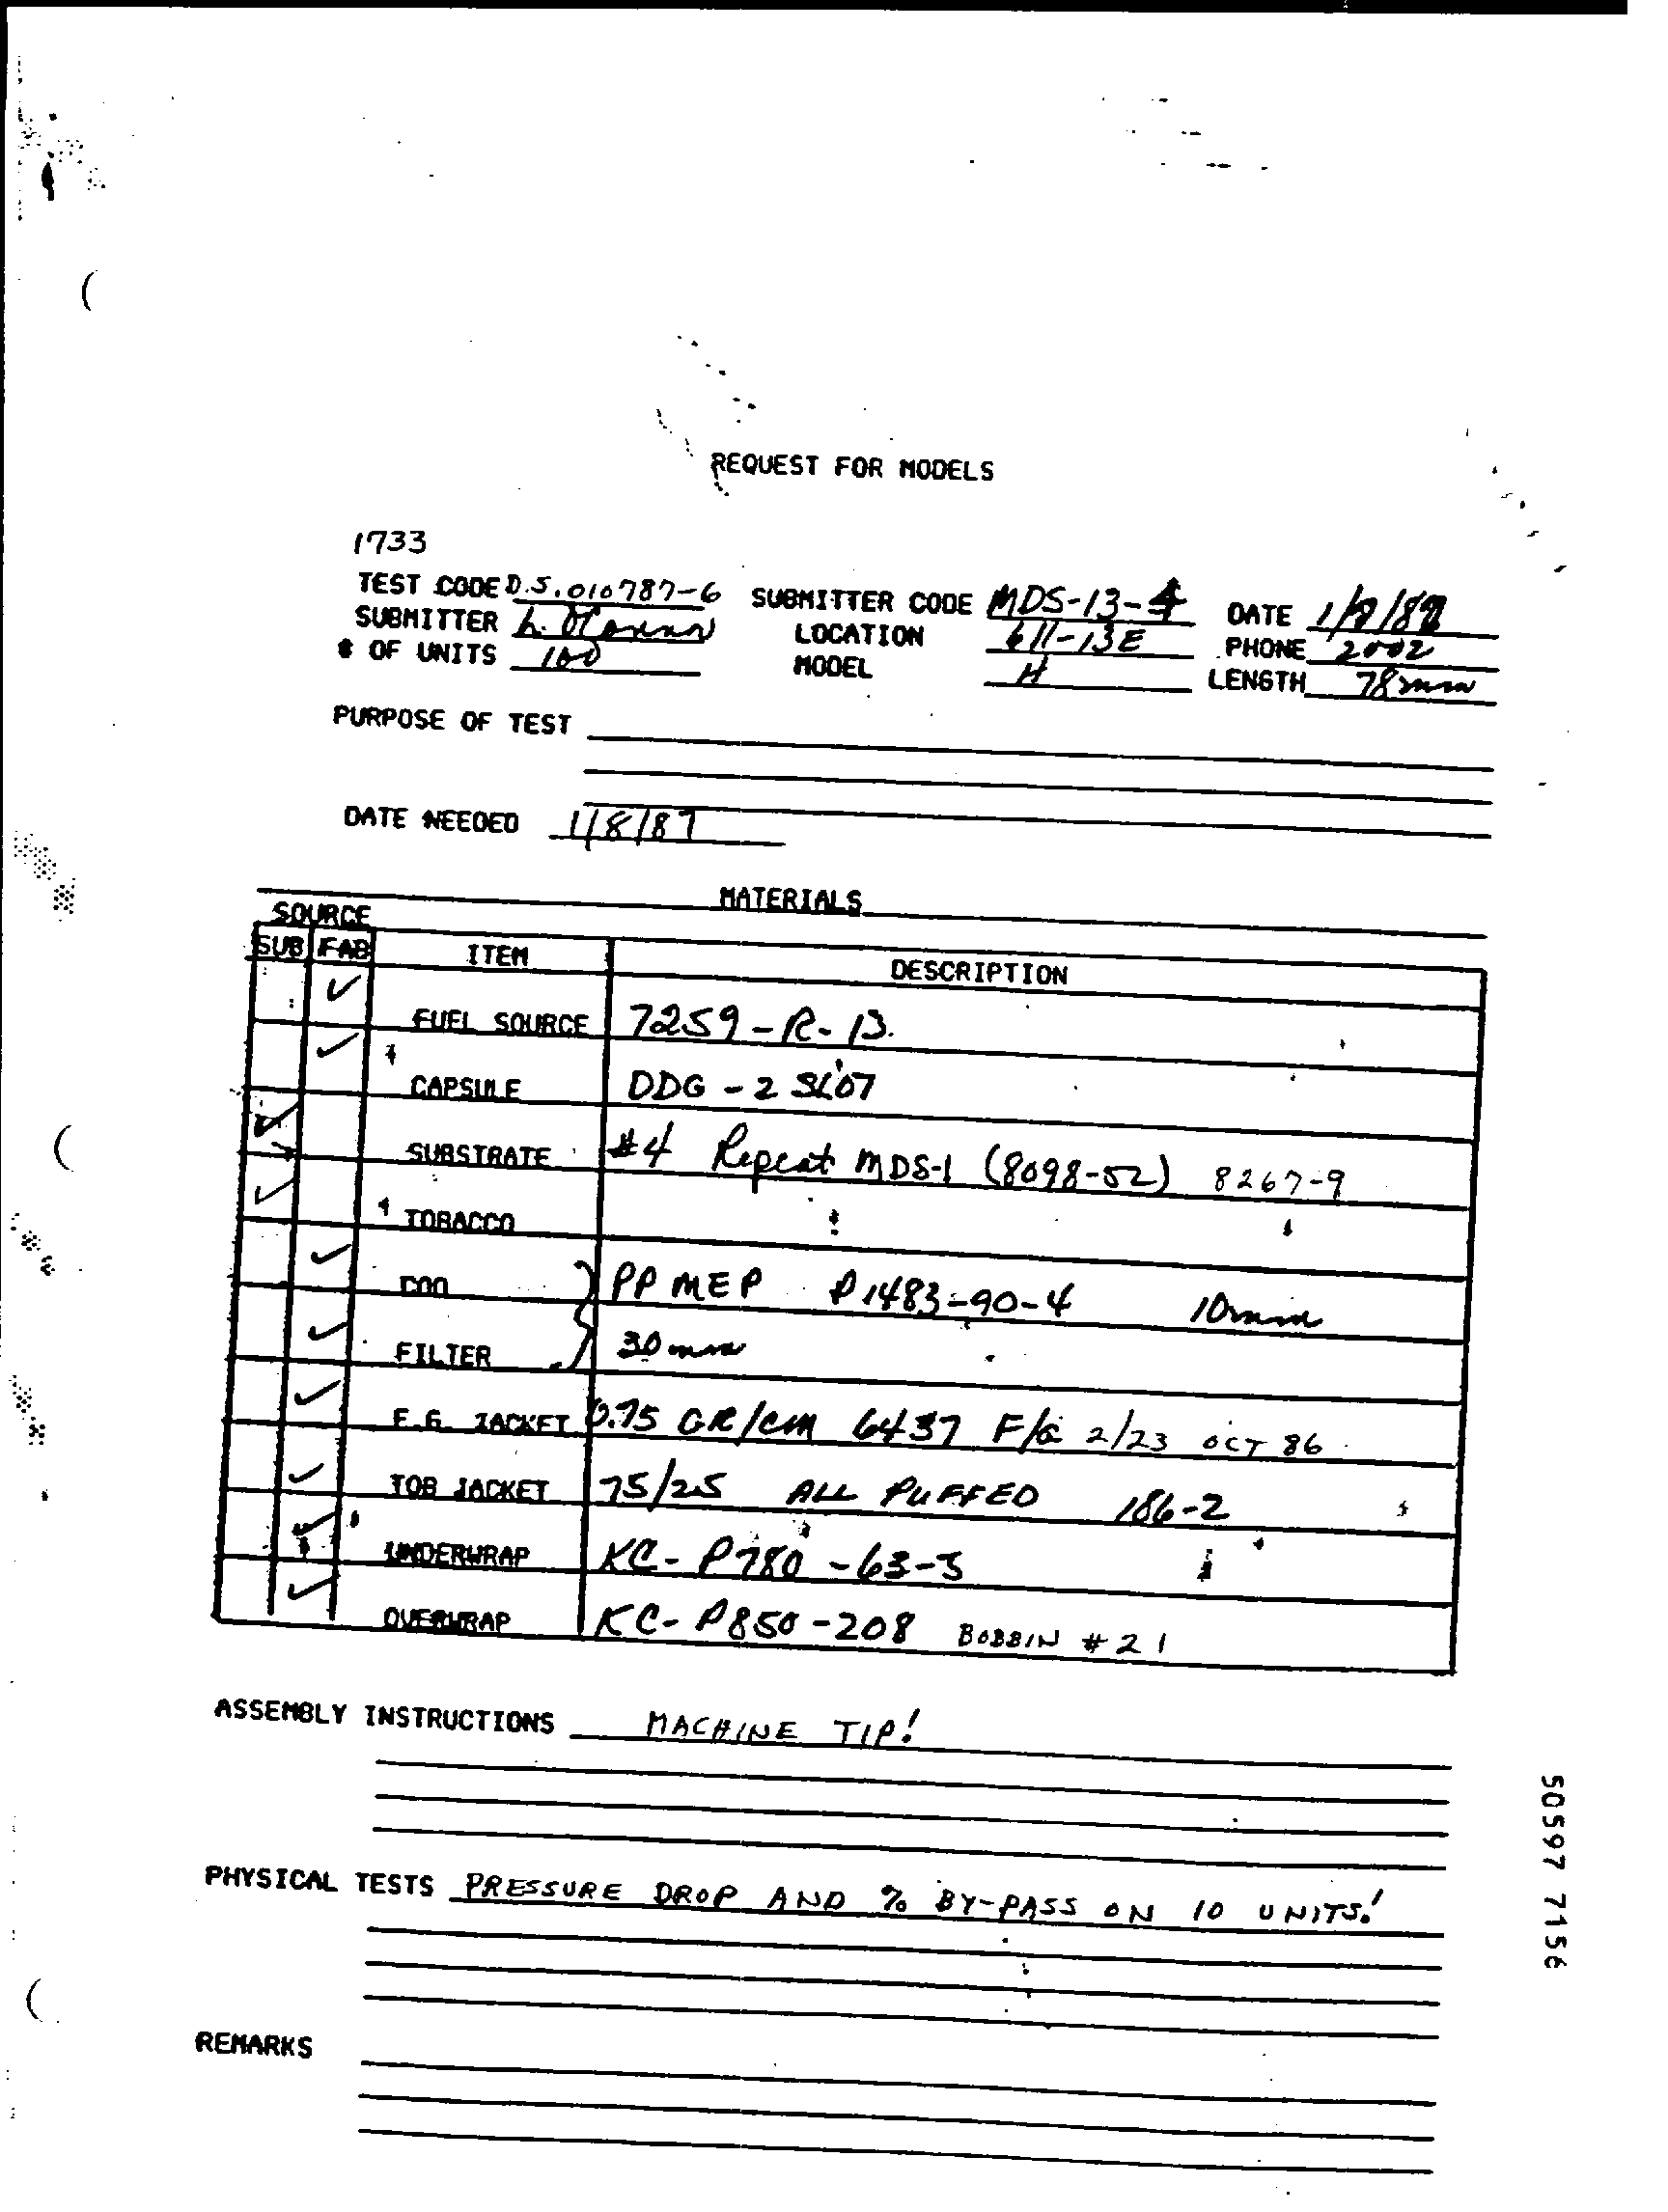 REQUEST FOR MODELS
1733
TEST CODE D.S. 010787-6 SUBMITTER CODE MDS-13-4 DATE
SUBMITTER L. LOCATION 611-13E PHONE 2002
# OF UNITS 100 MODEL H LENGTH 78mm
PURPOSE OF TEST
DATE NEEDED 1/8/87
MATERIALS
SOURCE
SUB FAB ITEM DESCRIPTION
✓ FUEL SOURCE 7259-R-13.
✓ CAPSULE DDG - 2 SLOT
✓ SUBSTRATE #4 Repeat MDS-1 (8098-52) 8267-9
✓ TOBACCO
✓ PP MEP P1483-90-4 10mm
✓ FILTER 30mm
✓ E.G. JACKET 0.75 GR/CM 6437 F/G 2/23 OCT 86
✓ TOB JACKET 75/25 ALL PUFFED 186-2
✓ UNDERWRAP KC-P780-63-5
✓ OVERWRAP KC-P850-208 BOBBIN #21
ASSEMBLY INSTRUCTIONS MACHINE TIP!
PHYSICAL TESTS PRESSURE DROP AND % BY-PASS ON 10 UNITS!
REMARKS
50597 7156